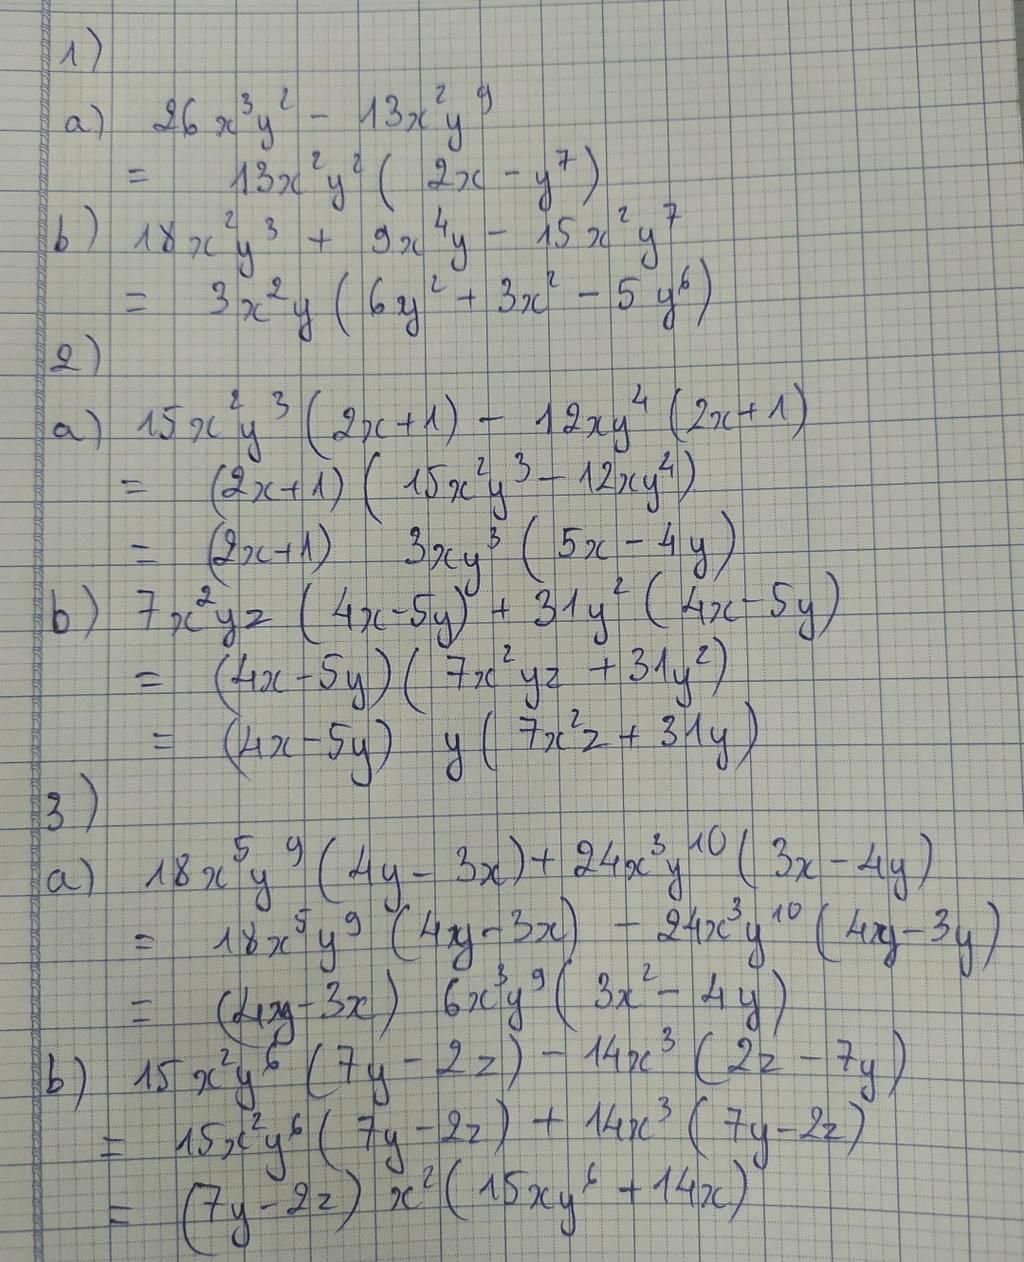 1)
a) 26x³y² - 13x²y⁹
= 13x²y² ( 2x - y⁷ )
b) 18x²y³ + 9x⁴y - 15x²y⁷
= 3x²y ( 6y² + 3x² - 5y⁶ )
2)
a) 15x²y³ ( 2x+1 ) - 12xy⁴ ( 2x+1 )
= (2x+1) ( 15x²y³ - 12xy⁴ )
= (2x+1) 3xy³ ( 5x - 4y )
b) 7x²yz ( 4x-5y ) + 31y² ( 4x-5y )
= (4x-5y) ( 7x²yz + 31y² )
= (4x-5y) y ( 7x²z + 31y )
3)
a) 18x⁵y⁹ ( 4y - 3x ) + 24x³y¹⁰ ( 3x - 4y )
= 18x⁵y⁹ ( 4y - 3x ) - 24x³y¹⁰ ( 4y - 3y )
= (4y - 3x) 6x³y⁹ ( 3x² - 4y )
b) 15x²y⁶ ( 7y - 2z ) - 14x³ ( 2z - 7y )
= 15x²y⁶ ( 7y - 2z ) + 14x³ ( 7y - 2z )
= (7y - 2z) x² ( 15xy⁶ + 14x )